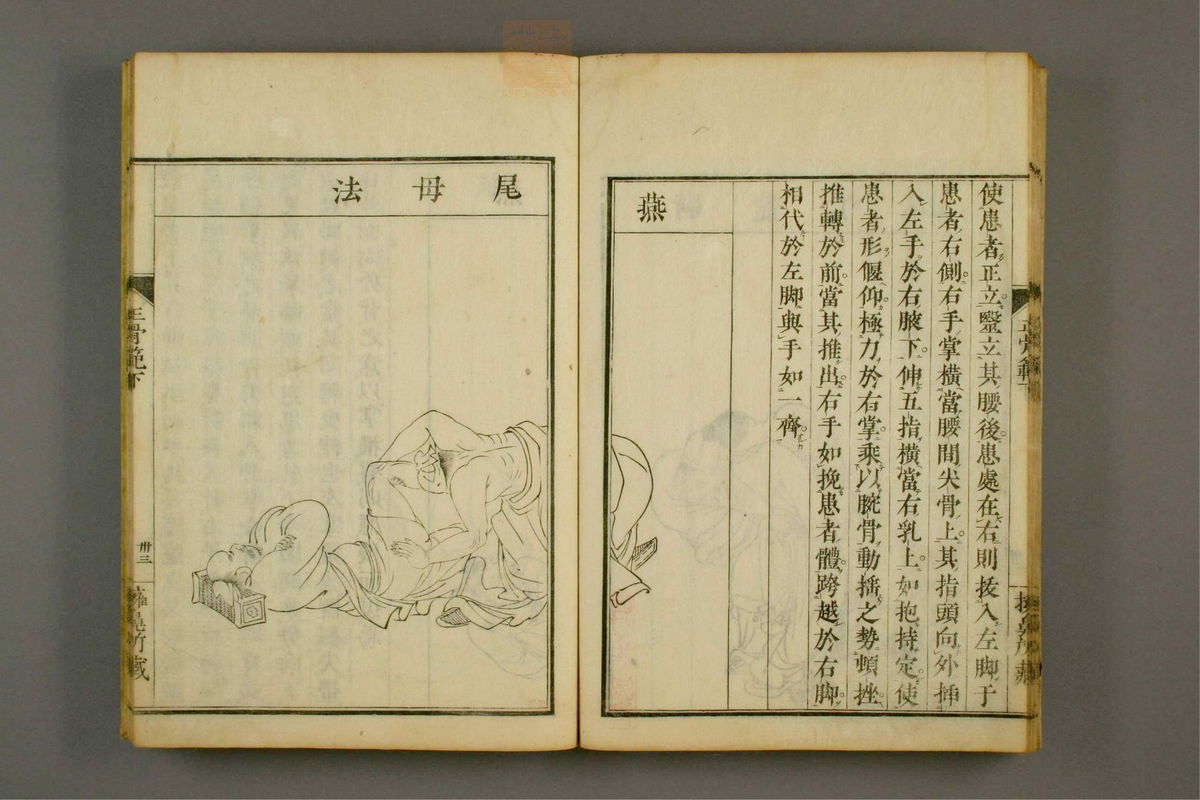 使患者正立毉立其腰後患處在右則拔入左脚于
患者右側右手掌橫當腰間尖骨上其指頭向外挿
入左手於右腋下伸五指橫當右乳上如抱持定使
患者形偃仰極力於右掌乘以腕骨動搖之勢頓挫
推轉於前當其推出右手如挽患者體跨越於右脚
相代於左脚與手如一齊
燕
尾母法
正骨範下
卅三